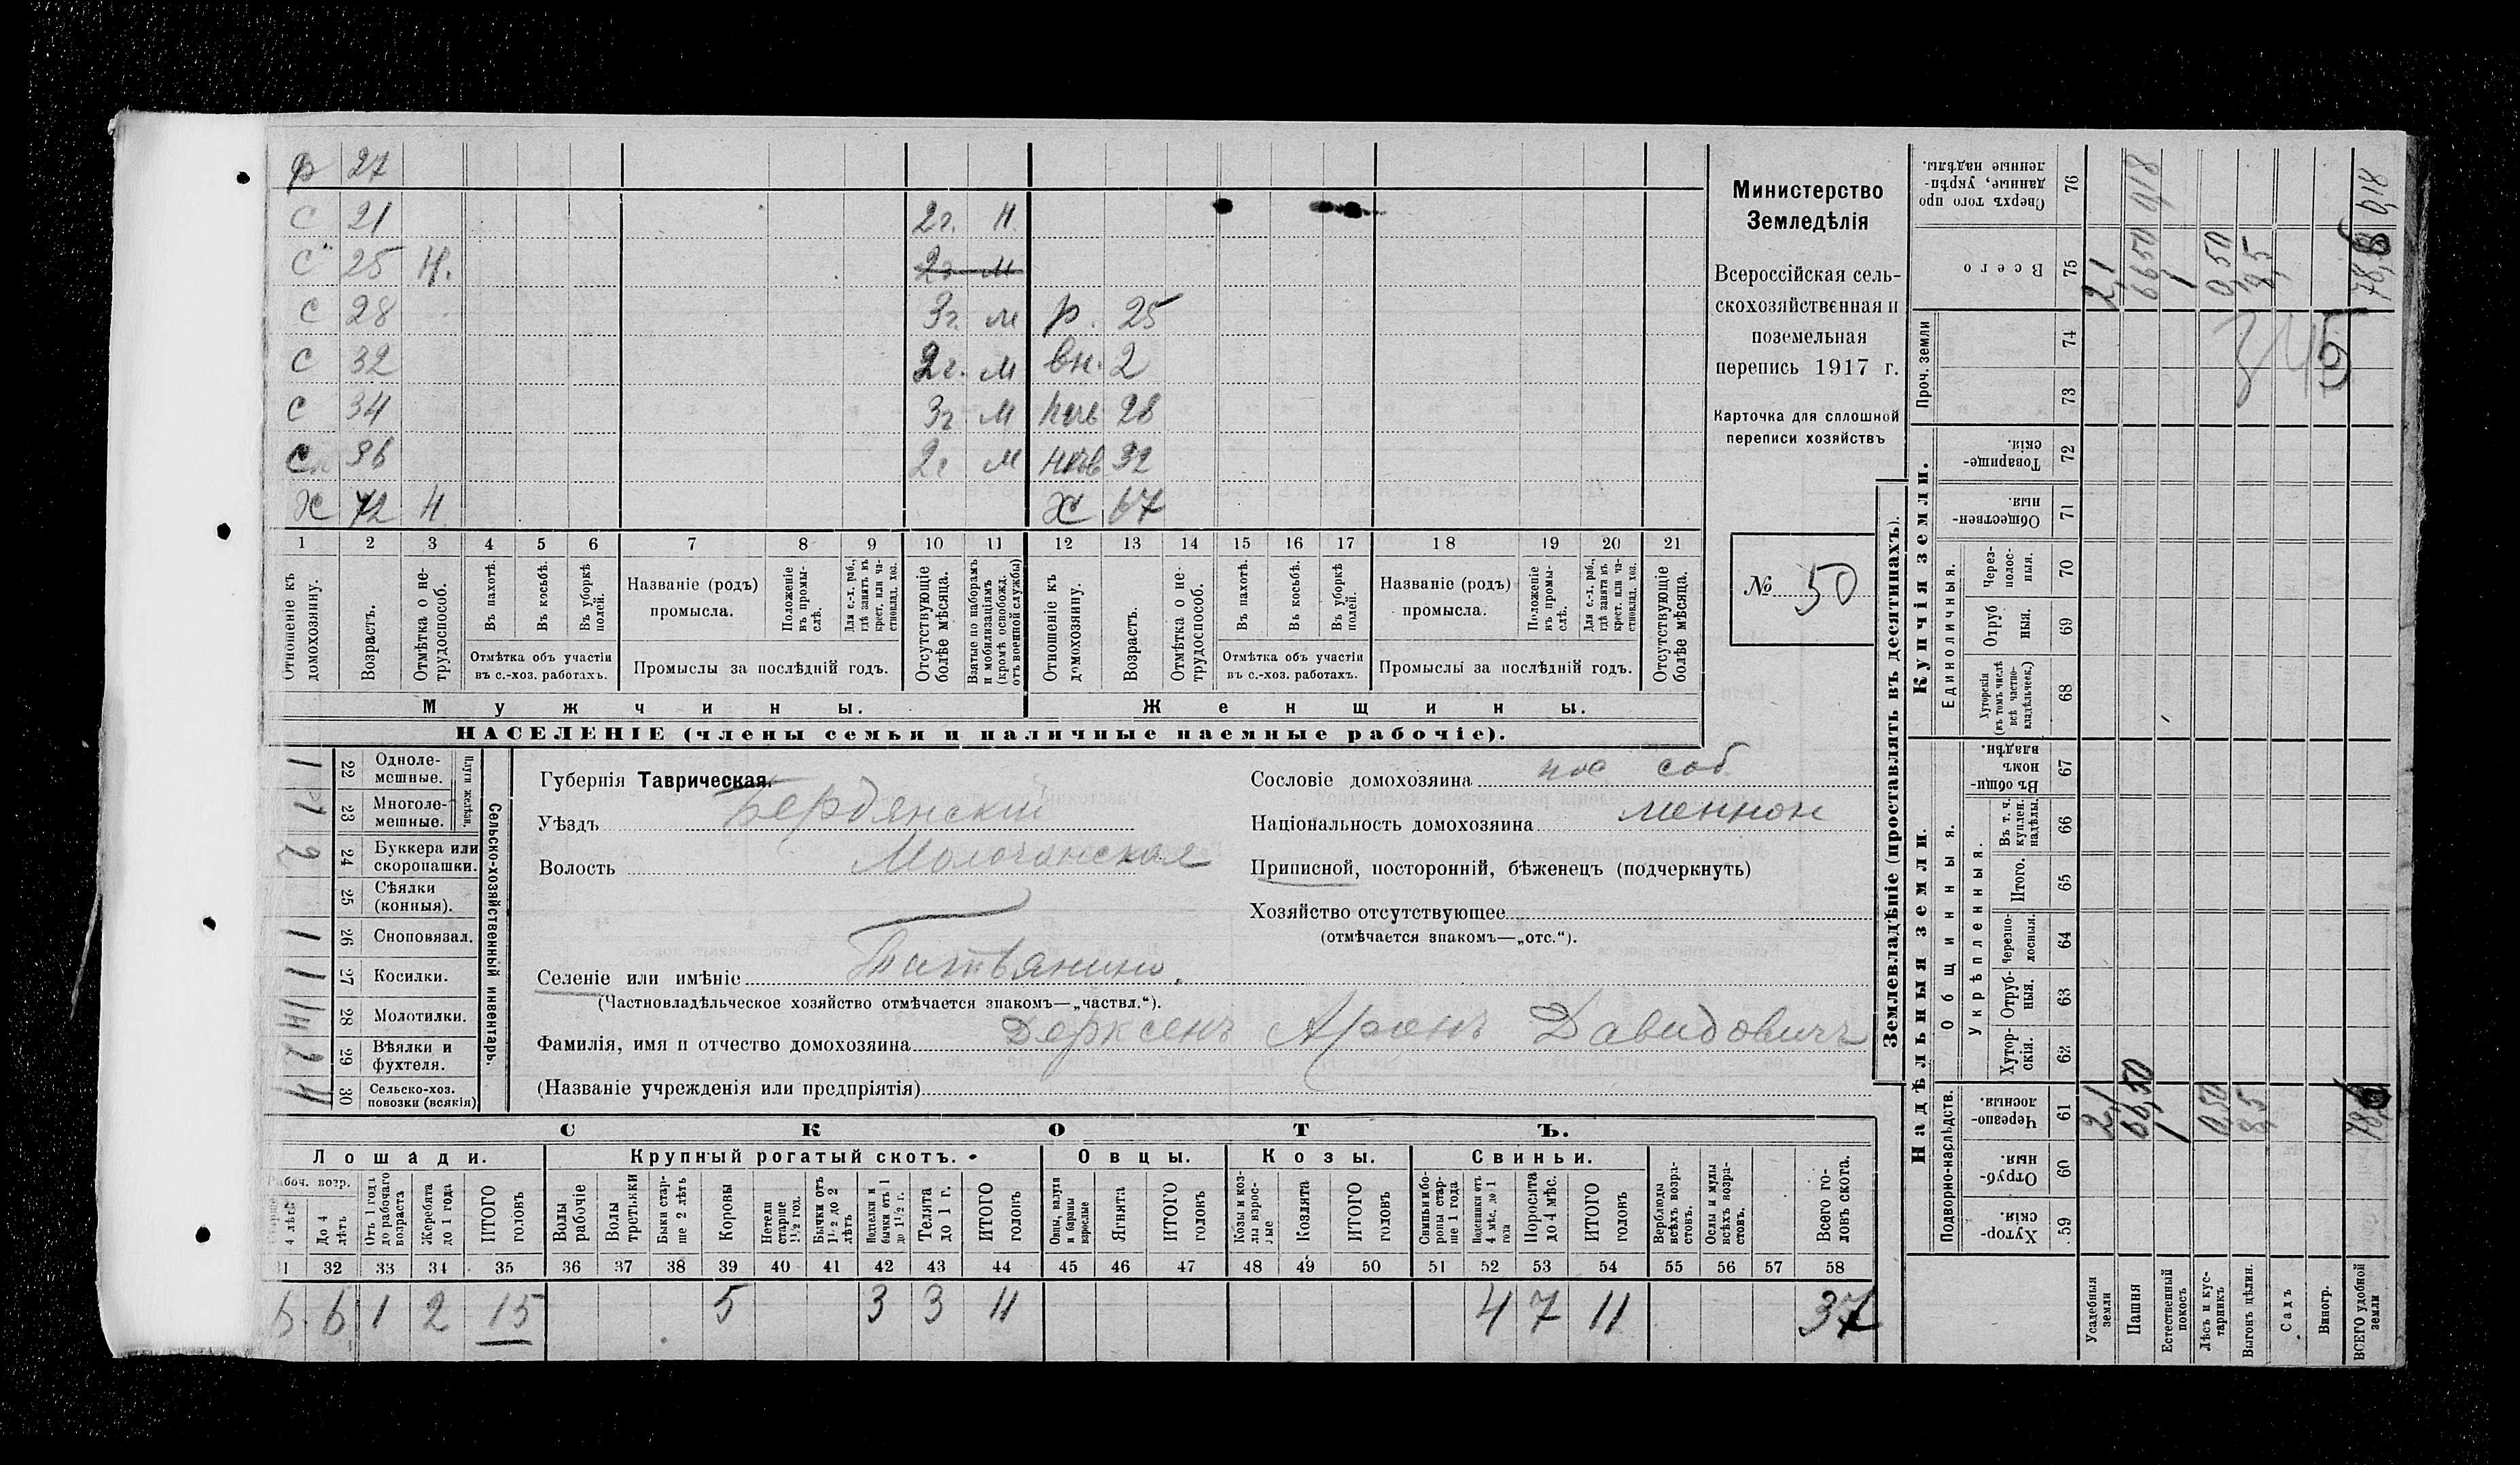 р 27
С 21 2г. Н.
С 25 Н. 2г м
С 28 3г. м р. 25
С 32 2г. м вн. 2
С 34 3г м 28
С 36 2г м 32
Х 72 Н Х 67
1 2 3 4 5 6 7 8 9 10 11 12 13 14 15 16 17 18 19 20 21
Отношеніе къ домохозяину.
Возрастъ.
Отмѣтка о нетрудоспособ.
Въ пахотѣ.
Въ косьбѣ.
Въ уборкѣ полей.
Отмѣтка объ участіи въ с.-хоз. работахъ.
Названіе (родъ) промысла.
Положеніе въ промыслѣ.
Для с.-х. раб., гдѣ занятъ въ крест. или частновлад. хоз.
Промыслы за послѣдній годъ.
Отсутствующіе болѣе мѣсяца.
Взятые по наборамъ и мобилизаціямъ (кромѣ освобожд. отъ военной службы)
Отношеніе къ домохозяину.
Возрастъ.
Отмѣтка о нетрудоспособ.
Въ пахотѣ.
Въ косьбѣ.
Въ уборкѣ полей.
Отмѣтка объ участіи въ с.-хоз. работахъ.
Названіе (родъ) промысла.
Положеніе въ промыслѣ.
Для с.-х. раб., гдѣ занята въ крест. или частновлад. хоз.
Промыслы за послѣдній годъ.
Отсутствующіе болѣе мѣсяца.
Мужчины. Женщины.
НАСЕЛЕНІЕ (члены семьи и наличные наемные рабочіе).
Министерство
Земледѣлія
Всероссійская сель-
скохозяйственная и
поземельная
перепись 1917 г.
Карточка для сплошной
переписи хозяйствъ
№ 50
Сельско-хозяйственный инвентарь.
Плуги желѣзн.
22 Однолемешные. 1
23 Многолемешные. 1
24 Буккера или скоропашки. 2
25 Сѣялки (конныя).
26 Сноповязал. 1
27 Косилки. 1
28 Молотилки.
29 Вѣялки и фухтеля. 2
30 Сельско-хоз. повозки (всякія) 4
Губернія Таврическая.
Уѣздъ Бердянский
Волость Молочанская
Селеніе или имѣніе
(Частновладѣльческое хозяйство отмѣчается знакомъ—„частвл.“).
Фамилія, имя и отчество домохозяина Дерксенъ Аронъ Давидовичъ
(Названіе учрежденія или предпріятія)
Сословіе домохозяина пос соб
Національность домохозяина меннон
Приписной, посторонній, бѣженецъ (подчеркнуть)
Хозяйство отсутствующее
(отмѣчается знакомъ—„отс.“).
СКОТЪ.
Лошади. Крупный рогатый скотъ. Овцы. Козы. Свиньи.
4 лѣтъ
До 4 лѣтъ
Отъ 1 года до рабочаго возраста
Жеребята до 1 года
ИТОГО головъ
Волы рабочіе
Волы третьяки
Быки старше 2 лѣтъ
Коровы
Нетели старше 1½ год.
Бычки отъ 1½ до 2 лѣтъ
Подтелки и бычки отъ 1 до 1½ г.
Телята до 1 г.
ИТОГО головъ
Овцы, валухи и бараны взрослые
Ягнята
ИТОГО головъ
Козы и козлы взрослые
Козлята
ИТОГО головъ
Свиньи и бороны старше 1 года
Подсвинки отъ 4 мѣс. до 1 года
Поросята до 4 мѣс.
ИТОГО головъ
Верблюды всѣхъ возрастовъ.
Ослы и мулы всѣхъ возрастовъ.
Всего головъ скота.
31 32 33 34 35 36 37 38 39 40 41 42 43 44 45 46 47 48 49 50 51 52 53 54 55 56 57 58
6 6 1 2 15 5 3 3 11 4 7 11 37
Землевладѣніе (проставлять въ десятинахъ).
Надѣльныя земли. Купчія земли.
Подворно-наслѣдств.
Общинныя.
Укрѣпленныя.
Единоличныя.
Проч. земли
59 Хуторскія.
60 Отрубныя.
61 Черезполосныя.
62 Хуторскія.
63 Отрубныя.
64 Черезполосныя.
65 Итого.
66 Въ т. ч. куплен. надѣлы.
67 Въ общинномъ владѣн.
68 Хуторскія (въ томъ числѣ всѣ частновладѣльческ.)
69 Отрубныя.
70 Черезполосныя.
71 Общественныя.
72 Товарищескія.
73
74
75 Всего
76 Сверхъ того проданные, укрѣпленные надѣлы.
Усадебныя земли 2,1 2,1
Пашня 66,50 6650
Естественный покосъ 1 1
Лѣсъ и кустарникъ 0,50 0,50
Выгонъ цѣлин. 8,5 8,5
Садъ
Виногр.
ВСЕГО удобной земли 78,6 78,6 0,18